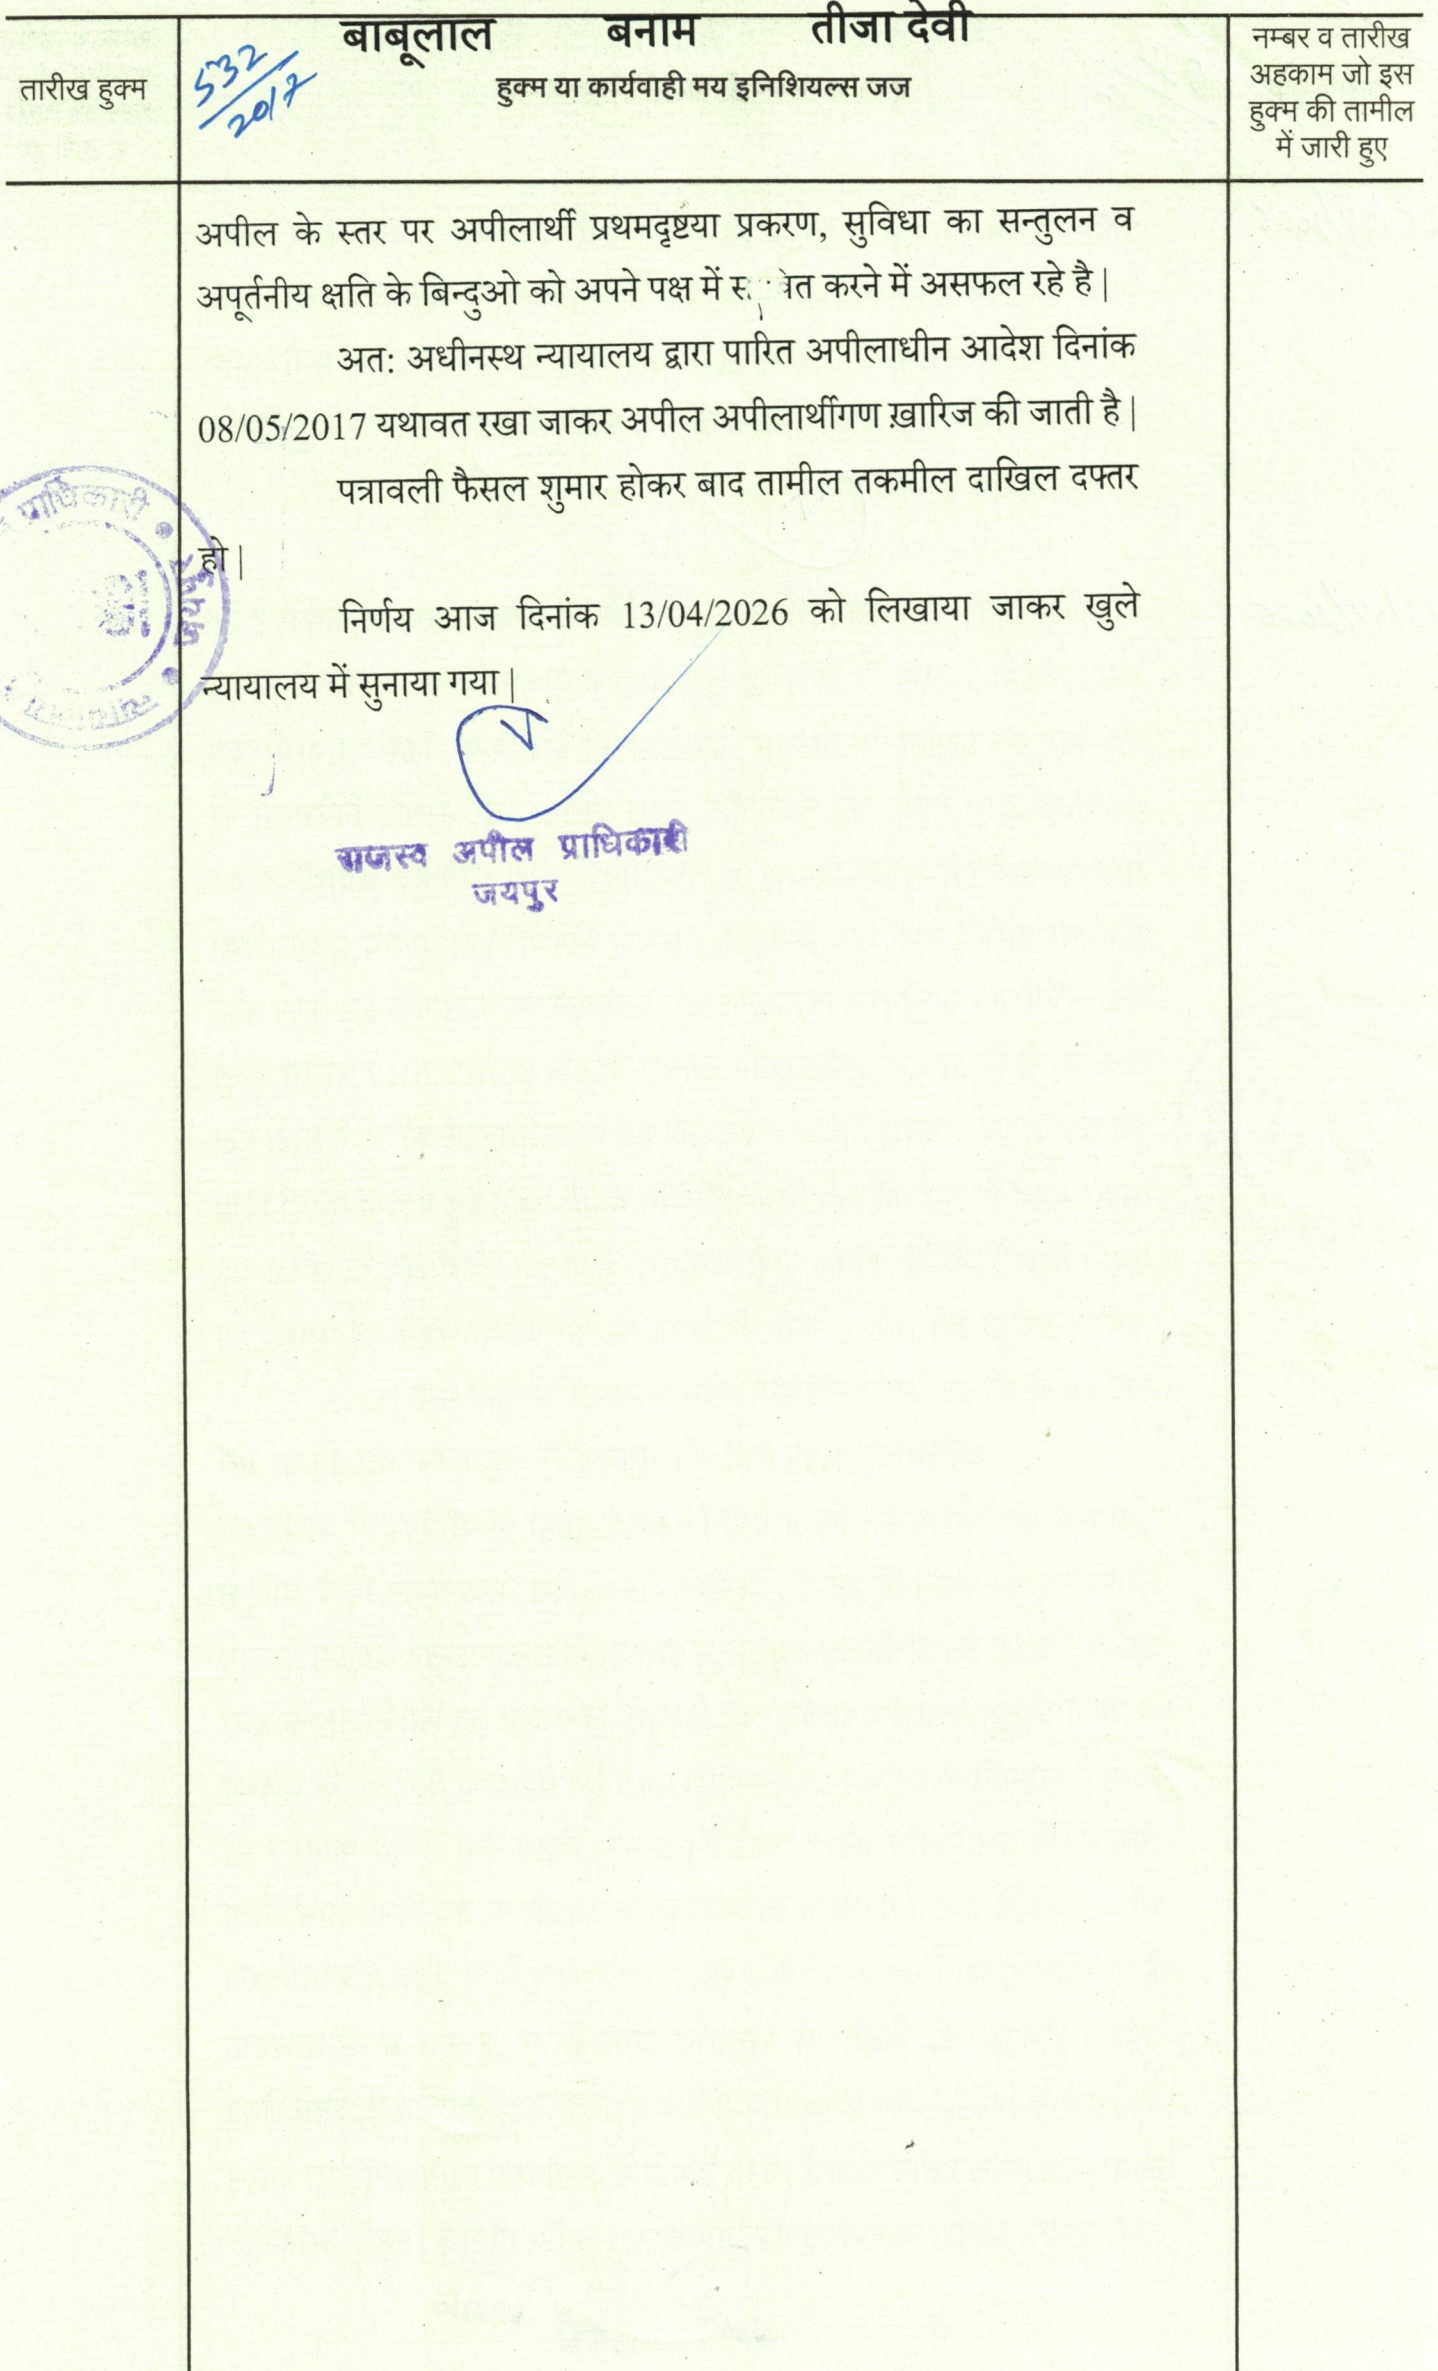 बाबूलाल बनाम तीजा देवी
तारीख हुक्म
532/2017
हुक्म या कार्यवाही मय इनिशियल्स जज
नम्बर व तारीख
अहकाम जो इस
हुक्म की तामील
में जारी हुए
अपील के स्तर पर अपीलार्थी प्रथमदृष्टया प्रकरण, सुविधा का सन्तुलन व
अपूर्तनीय क्षति के बिन्दुओ को अपने पक्ष में करने में असफल रहे है|
अत: अधीनस्थ न्यायालय द्वारा पारित अपीलाधीन आदेश दिनांक
08/05/2017 यथावत रखा जाकर अपील अपीलार्थीगण ख़ारिज की जाती है|
पत्रावली फैसल शुमार होकर बाद तामील तकमील दाखिल दफ्तर
हो|
निर्णय आज दिनांक 13/04/2026 को लिखाया जाकर खुले
न्यायालय में सुनाया गया|
प्राधिकारी
जयपुर
राजस्व अपील प्राधिकारी
जयपुर